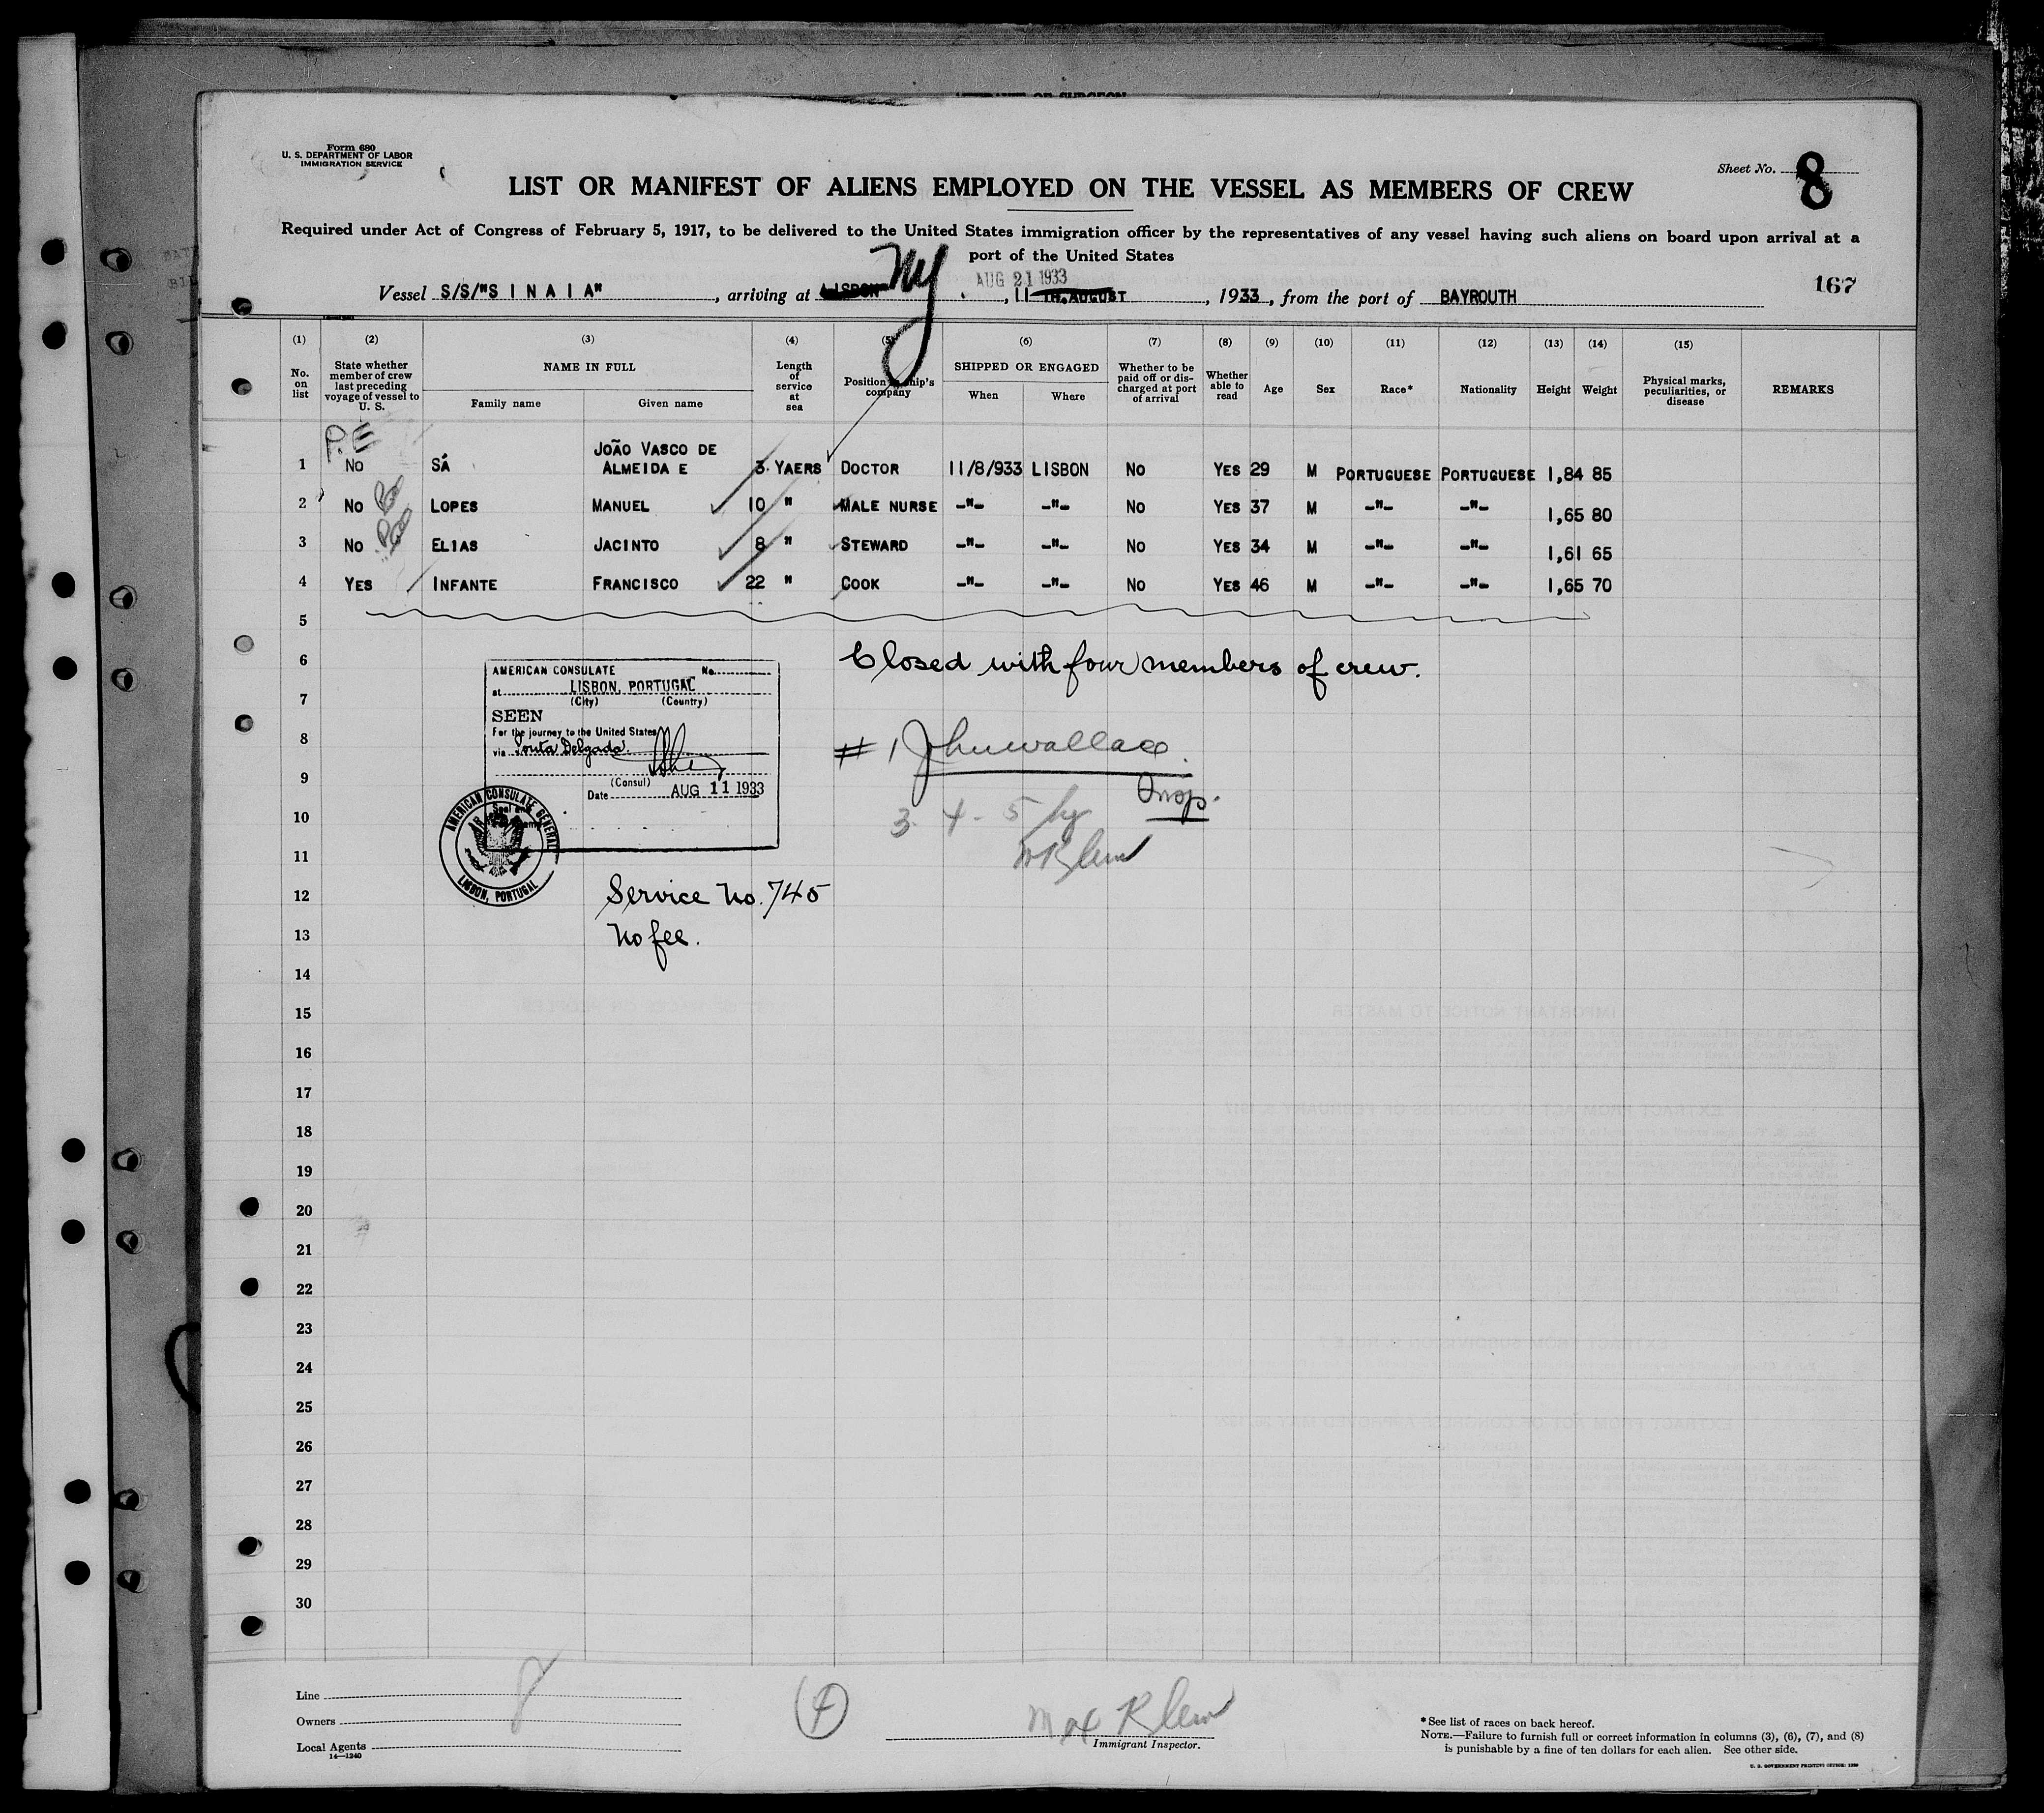 Form 680
U. S. DEPARTMENT OF LABOR
IMMIGRATION SERVICE
Sheet No. 8
LIST OR MANIFEST OF ALIENS EMPLOYED ON THE VESSEL AS MEMBERS OF CREW
Required under Act of Congress of February 5, 1917, to be delivered to the United States immigration officer by the representatives of any vessel having such aliens on board upon arrival at a
port of the United States
NY
AUG 21 1933
167
Vessel S/S/"S I N A I A", arriving at LISBON, 11 TH.AUGUST, 1933, from the port of BAYROUTH
(1) (2) (3) (4) (5) (6) (7) (8) (9) (10) (11) (12) (13) (14) (15)
No. on list
State whether member of crew last preceding voyage of vessel to U. S.
NAME IN FULL
Family name
Given name
Length of service at sea
Position in ship's company
SHIPPED OR ENGAGED
When
Where
Whether to be paid off or discharged at port of arrival
Whether able to read
Age
Sex
Race*
Nationality
Height
Weight
Physical marks, peculiarities, or disease
REMARKS
P.E
1 No SÁ JOÃO VASCO DE ALMEIDA E 3 YAERS DOCTOR 11/8/933 LISBON No YES 29 M PORTUGUESE PORTUGUESE 1,84 85
2 No LOPES MANUEL 10 " MALE NURSE -"- -"- No YES 37 M -"- -"- 1,65 80
3 No ELIAS JACINTO 8 " STEWARD -"- -"- No YES 34 M -"- -"- 1,61 65
4 YES INFANTE FRANCISCO 22 " COOK -"- -"- No YES 46 M -"- -"- 1,65 70
5
6
7
8
9
10
11
12
13
14
15
16
17
18
19
20
21
22
23
24
25
26
27
28
29
30
Closed with four members of crew.
AMERICAN CONSULATE No.
at LISBON, PORTUGAL
(City) (Country)
SEEN
For the journey to the United States
via Ponta Delgada
(Consul)
Date AUG 11 1933
AMERICAN CONSULATE GENERAL
LISBON, PORTUGAL
# 1 John Wallace
Insp.
3 - 4 - 5 by
M Klein
Service No. 745
No fee.
8
4
Max Klein
Line
Owners
Local Agents
14—1240
Immigrant Inspector.
*See list of races on back hereof.
NOTE.—Failure to furnish full or correct information in columns (3), (6), (7), and (8)
is punishable by a fine of ten dollars for each alien. See other side.